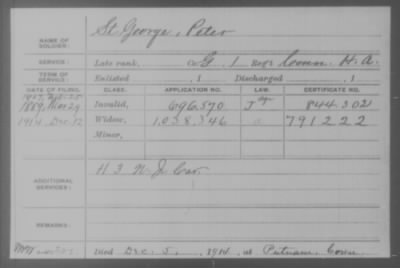 NAME OF SOLDIER: St George, Peter
SERVICE: Late rank, Co. G, 1 Reg't Conn. H.A.
TERM OF SERVICE: Enlisted , 1 Discharged , 1
DATE OF FILING. CLASS. APPLICATION NO. LAW. CERTIFICATE NO.
1889, Mar 29 Invalid, 696,570 J 844.302
1914 Dec. 12 Widow, 1,038,346 791222
Minor,
ADDITIONAL SERVICES: H 3 N.J. Cav.
REMARKS:
Died Dec. 5, 1914, at Putnam, Conn.